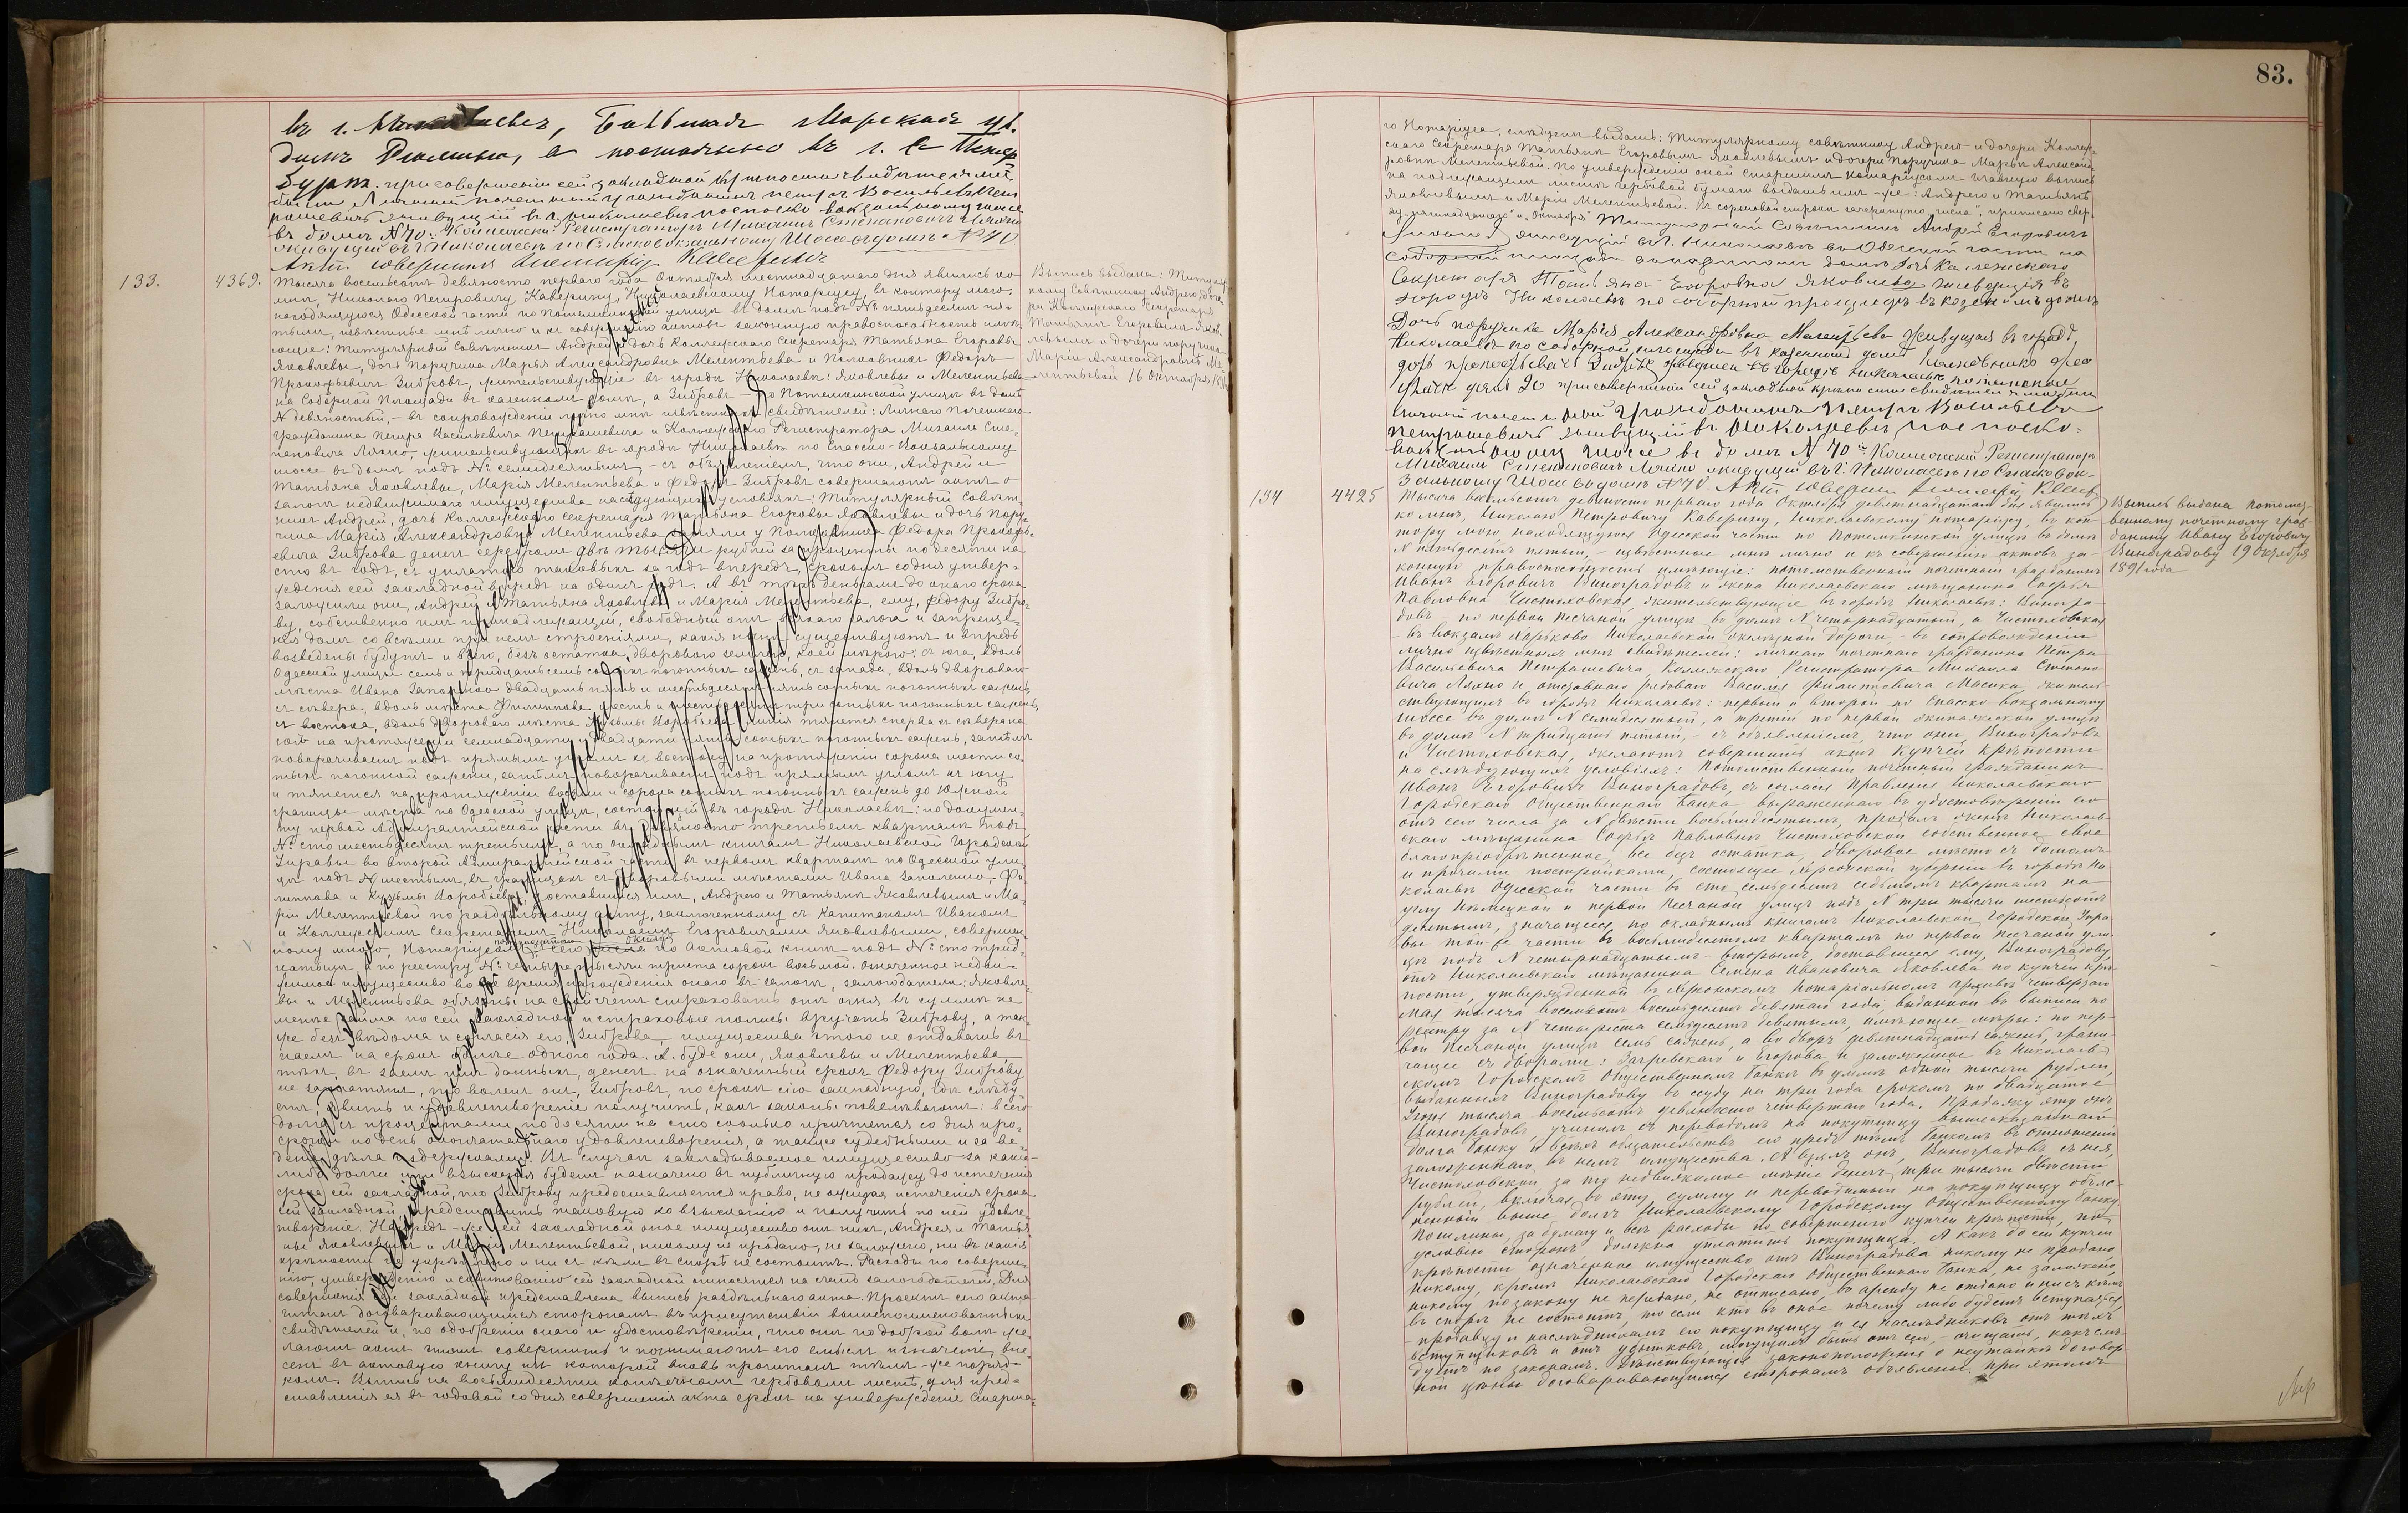 83.
въ г. Николаевѣ, Большая Морская ул.
домъ Рюмина, а постоянно въ г. С. Петер
бургѣ. при совершеніи сей закладной крѣпости свидѣтелями
были Личный почетный гражданинъ петръ Васильевичъ Пет
рашевичъ живущій въ г. Николаевѣ по спаско вокзальному шоссе
въ домѣ № 70. Коллежскій Регистраторъ Михаилъ Степановичъ Ляхно
живущій въ г. Николаевѣ по Спаско Вокзальному Шоссе въ домѣ № 70
Актъ совершилъ Нотаріусъ Каверинъ
133.
4369.
Тысяча восемьсотъ девяносто перваго года Октября шестнадцатаго дня явились ко
мнѣ, Николаю Петровичу Каверину, Николаевскому Нотаріусу, въ контору мою,
находящуюся Одесской части по Потемкинской улицѣ въ домѣ подъ № пятьдесятъ пя-
тымъ, извѣстные мнѣ лично и къ совершенію актовъ законную правоспособность имѣ-
ющіе: Титулярный Совѣтникъ Андрей и дочь Коллежскаго Секретаря Татьяна Егоровы
Яковлевы, дочь Поручика Марья Александровна Мелентьева и Полковникъ Федоръ
Прокофьевичъ Зибровъ, жительствующіе въ городѣ Николаевѣ: Яковлевы и Мелентьева
на Соборной Площади въ казенномъ домѣ, а Зибровъ – по Потемкинской улицѣ въ домѣ
№ девяностый, – въ сопровожденіи лично мнѣ извѣстныхъ свидѣтелей: Личнаго Почетнаго
Гражданина Петра Васильевича Петрашевича и Коллежскаго Регистратора Михаила Сте-
пановича Ляхно, жительствующихъ въ городѣ Николаевѣ по Спасско-Вокзальному
шоссе въ домѣ подъ № семидесятымъ, – съ объявленіемъ, что они, Андрей и
Татьяна Яковлевы, Марія Мелентьева и Федоръ Зибровъ совершаютъ актъ о
залогѣ недвижимаго имущества на слѣдующихъ условіяхъ: Титулярный Совѣт-
никъ Андрей, дочь Коллежскаго Секретаря Татьяна Егоровы Яковлевы и дочь Пору-
чика Марія Александровна Мелентьева заняли у Полковника Федора Прокофь-
евича Зиброва денегъ серебромъ двѣ тысячи рублей за проценты по десяти на
сто въ годъ, съ уплатою таковыхъ за годъ впередъ, срокомъ со дня утвер-
жденія сей закладной впредь на одинъ годъ. А въ тѣхъ деньгахъ до онаго срока
заложили они, Андрей и Татьяна Яковлевы и Марія Мелентьева, ему, Федору Зибро-
ву, собственно имъ принадлежащій, свободный отъ всякаго залога и запреще-
нія домъ со всѣми при немъ строеніями, какія нынѣ существуютъ и впредь
возведены будутъ и всею, безъ остатка, дворовою землею, коей мѣрою: съ юга, вдоль
Одесской улицы семь и тридцать семь сотыхъ погонныхъ саженъ, съ запада, вдоль двороваго
мѣста Ивана Запорожно двадцать пять и шестьдесятъ пять сотыхъ погонныхъ саженъ,
съ сѣвера, вдоль мѣста Филиппова шесть и шестьдесятъ три сотыхъ погонныхъ саженъ,
съ востока, вдоль двороваго мѣста Кузьмы Воробьева линія тянется сперва съ сѣвера на
югъ на протяженіи семнадцати и двадцати пяти сотыхъ погонныхъ саженъ, затѣмъ
поворачиваетъ подъ прямымъ угломъ къ востоку на протяженіи сорока шести со-
тыхъ погонной сажени, затѣмъ поворачиваетъ подъ прямымъ угломъ къ югу
и тянется на протяженіи восьми и сорока сотыхъ погонныхъ саженъ до южной
границы мѣста по Одесской улицѣ, состоящій въ городѣ Николаевѣ: по докумен-
ту первой Адмиралтейской части въ девяносто третьемъ кварталѣ подъ
№ сто шестьдесятъ третьимъ, а по окладнымъ книгамъ Николаевской Городской
Управы во второй Адмиралтейской части въ первомъ кварталѣ по Одесской ули-
цѣ подъ № шестымъ, въ границахъ съ дворовыми мѣстами Ивана , Фи-
липпова и Кузьмы Воробьева, доставшійся имъ, Андрею и Татьянѣ Яковлевымъ и Ма-
ріи Мелентьевой по раздѣльному акту, заключенному съ Капитаномъ Иваномъ
и Коллежскимъ Секретаремъ Николаемъ Егоровичами Яковлевыми, совершен-
пятнадцатаго Октября
ному мною, Нотаріусомъ, сего числа по Актовой книгѣ подъ № сто трид-
цатымъ а по реестру № четыре тысячи триста сорокъ восьмой. Означенное недви-
жимое имущество во все время нахожденія онаго въ залогѣ, залогодатели: Яковле-
вы и Мелентьева обязаны на свой счетъ страховать отъ огня въ суммѣ не
менѣе займа по сей закладной и страховые полисы вручать Зиброву, а так-
же безъ вѣдома и согласія его, Зиброва имущества этого не отдавать въ
наемъ на срокъ болѣе одного года. А буде они, Яковлевы и Мелентьева,
тѣхъ, въ заемъ имъ данныхъ, денегъ на означенный срокъ Федору Зиброву
не заплатятъ, то воленъ онъ, Зибровъ, по срокѣ сію закладную, гдѣ слѣду
етъ, явить и удовлетвореніе получить, какъ законы повелѣваютъ: всего
долга съ процентами по десяти на сто сколько причтется со дня про-
срочки по день окончательнаго удовлетворенія, а также судебными и за ве-
деніе дѣла издержками. Въ случаѣ закладываемое имущество за какія-
либо долги или взысканія будетъ назначено въ публичную продажу до истеченія
срока сей закладной, то Зиброву предоставляется право, не ожидая истеченія срока
сей закладной представить таковую ко взысканію и получить по ней удовле-
твореніе. Напредь же сей закладной оное имущество отъ нихъ, Андрея и Татья
ны Яковлевыхъ и Маріи Мелентьевой, никому не продано, не заложено, ни въ какія
крѣпости не укрѣплено и ни съ кѣмъ въ спорѣ не состоитъ. Расходы по соверше-
нію, утвержденію и сей закладной относятся на счетъ залогодателей. Для
совершенія сей закладной представлена выпись раздѣльнаго акта. Проектъ сего акта
читанъ договаривающимся сторонамъ въ присутствіи вышепоименованныхъ
свидѣтелей и, по одобреніи онаго и удостовѣреніи, что они по доброй волѣ же-
лаютъ актъ этотъ совершить и понимаютъ его смыслъ и значеніе, вне-
сенъ въ актовую книгу изъ которой вновь прочитанъ тѣмъ-же поряд-
комъ. Выпись на восьмидесяти копѣечномъ гербовомъ листѣ, для пред-
ставленія ея въ годовой со дня совершенія акта срокъ на утвержденіе Старша-
Выпись выдана: Титуляр-
ному Совѣтнику Андрею, доче-
ри Коллежскаго Секретаря
Татьянѣ Егоровымъ Яков-
левымъ и дочери поручика
Маріи Александровнѣ Ме-
лентьевой 16 Октября 1891
го Нотаріуса, слѣдуетъ выдать: Титулярному совѣтнику Андрею и дочери Коллеж-
скаго Секретаря Татьянѣ Егоровымъ Яковлевымъ и дочери Поручика Марьѣ Александ-
ровнѣ Мелентьевой. По утвержденіи оной Старшимъ Нотаріусомъ главную выпись
на надлежащемъ листѣ гербовой бумаги выдать имъ-же: Андрею и Татьянѣ
Яковлевымъ и Маріи Мелентьевой. Въ сороковой строкѣ зачеркнуто „числа“, приписано свер-
ху „пятнадцатаго“ и „Октября“ Титулярный Совѣтникъ Андрей Егоровичъ
Яковлевъ живущій въ г. Николаевѣ въ Одесской части на
соборной площади въ казенномъ домѣ. Дочь Коллежскаго
Секретаря Татьяна Егоровна Яковлева живущая въ
городѣ Николаевѣ по соборной площадѣ въ казенномъ домѣ
Дочь поручика Марія Александровна Мелентьева Живущая въ городѣ
Николаевѣ по соборной площади въ казенномъ домѣ Полковникъ Фео
доръ прокофьевичъ Зибровъ живущій въ городѣ Николаевѣ потемкин
улицѣ домъ 90 при совершеніи сей закладной крѣпости свидѣтелями были
личный почетный гражданинъ петръ Васильевичъ
петрашевичъ живущій въ Николаевѣ, по спаско-
вокзальному шоссе въ домѣ № 70 Коллежскій Регистраторъ
Михаилъ Степановичъ Ляхно живущій въ г. Николаевѣ по Спаско Вок-
зальному Шоссе въ домѣ № 70 Актъ совершилъ Нотаріусъ Кавер
134
4425
Тысяча восемьсотъ девяносто перваго года Октября девятнадцатаго дня явились
ко мнѣ, Николаю Петровичу Каверину, Николаевскому нотаріусу, въ кон-
тору мою, находящуюся Одесской части по Потемкинской улицѣ въ домѣ
№ пятьдесятъ пятый, – извѣстные мнѣ лично и къ совершенію актовъ за-
конную правоспособность имѣющіе: потомственный почетный гражданинъ
Иванъ Егоровичъ Виноградовъ и жена Николаевскаго мѣщанина Софья
Павловна Чистоховская, жительствующіе въ городѣ Николаевѣ: Виногра-
довъ по первой Песчаной улицѣ въ домѣ № четырнадцатый, а Чистоховская
– въ вокзалѣ Харьково Николаевской желѣзной дороги, – въ сопровожденіи
лично извѣстныхъ мнѣ свидѣтелей: личнаго почетнаго гражданина Петра
Васильевича Петрашевича, Коллежскаго Регистратора Михаила Степано-
вича Ляхно и отставнаго рядоваго Василія Филипповича Масика, житель-
ствующихъ въ городѣ Николаевѣ: первый и второй по Спасско вокзальному
шоссе въ домѣ № семидесятый, а третій по первой экипажеской улицѣ
въ домѣ № тридцать пятый, – съ объявленіемъ, что они, Виноградовъ
и Чистоховская, желаютъ совершить актъ купчей крѣпости
на слѣдующихъ условіяхъ: Потомственный почетный гражданинъ
Иванъ Егоровичъ Виноградовъ, съ согласія Правленія Николаевскаго
Городскаго Общественнаго Банка, выраженнаго въ удостовѣреніи его
отъ сего числа за № двѣсти восьмидесятымъ, продалъ женѣ Николаев-
скаго мѣщанина Софьѣ Павловнѣ Чистоховской собственное свое
благопріобрѣтенное, все безъ остатка, дворовое мѣсто съ домомъ
и прочими постройками, состоящее Херсонской губерніи въ городѣ Ни-
колаевѣ Одесской части въ сто семьдесятъ седьмомъ кварталѣ на
углу Нѣмецкой и первой Песчаной улицъ подъ № три тысячи шестьсотъ
девятымъ, значащееся по окладнымъ книгамъ Николаевской Городской Упра-
вы той же части въ восьмидесятомъ кварталѣ по первой Песчаной ули-
цѣ подъ № четырнадцатымъ – вторымъ, доставшееся ему, Виноградову,
отъ Николаевскаго мѣщанина Семена Ивановича Яковлева по купчей крѣ-
пости, утвержденной въ Херсонскомъ Нотаріальномъ архивѣ четвертаго
мая тысяча восемьсотъ восемьдесятъ девятаго года, выданной въ выписи по
реестру за № четыреста семьдесятъ девятымъ, имѣющее мѣры: по пер-
вой Песчаной улицѣ семь саженъ, а во дворъ девятнадцать саженъ, грани-
чащее съ дворами: Загревскаго и Егорова и заложенное въ Николаев-
скомъ Городскомъ Общественномъ Банкѣ въ суммѣ одной тысячи рублей,
выданныхъ Виноградову въ ссуду на три года срокомъ по двадцатое
Іюня тысяча восемьсотъ девяносто четвертаго года. Продажу эту онъ
Виноградовъ, учинилъ съ переводомъ на покупщицу вышесказаннаго
долга Банку и всѣхъ обязательствъ его предъ тѣмъ Банкомъ въ отношеніи
заложеннаго въ немъ имущества. А взялъ онъ, Виноградовъ съ нея,
Чистоховской, за то недвижимое имѣніе денегъ три тысячи двѣсти
рублей, включая въ эту сумму и переводимый на покупщицу объяс-
ненный выше долгъ Николаевскому Городскому Общественному банку.
Пошлины, за бумагу и всѣ расходы по совершенію купчей крѣпости, по
условію сторонъ, должна уплатить покупщица. А какъ до сей купчей
крѣпости означенное имущество отъ Виноградова никому не продано,
никому, кромѣ Николаевскаго Городскаго Общественнаго Банка, не заложено,
никому по закону не передано, не отписано, въ аренду не отдано и ни съ кѣмъ
въ спорѣ не состоитъ, то если кто въ оное почему либо будетъ вступаться,
– продавцу и наслѣдникамъ его покупщицу и ея наслѣдниковъ отъ тѣхъ
вступщиковъ и отъ убытковъ, могущихъ быть отъ сего, – очищать, какъ слѣ-
дуетъ по законамъ. Дѣйствующія законоположенія о неутайкѣ договор-
ной цѣны договаривающимся сторонамъ объявлены. При этомъ
Выпись выдана потомс-
твенному почетному граж-
данину Ивану Егоровичу
Виноградову 19 Октября
1891 года